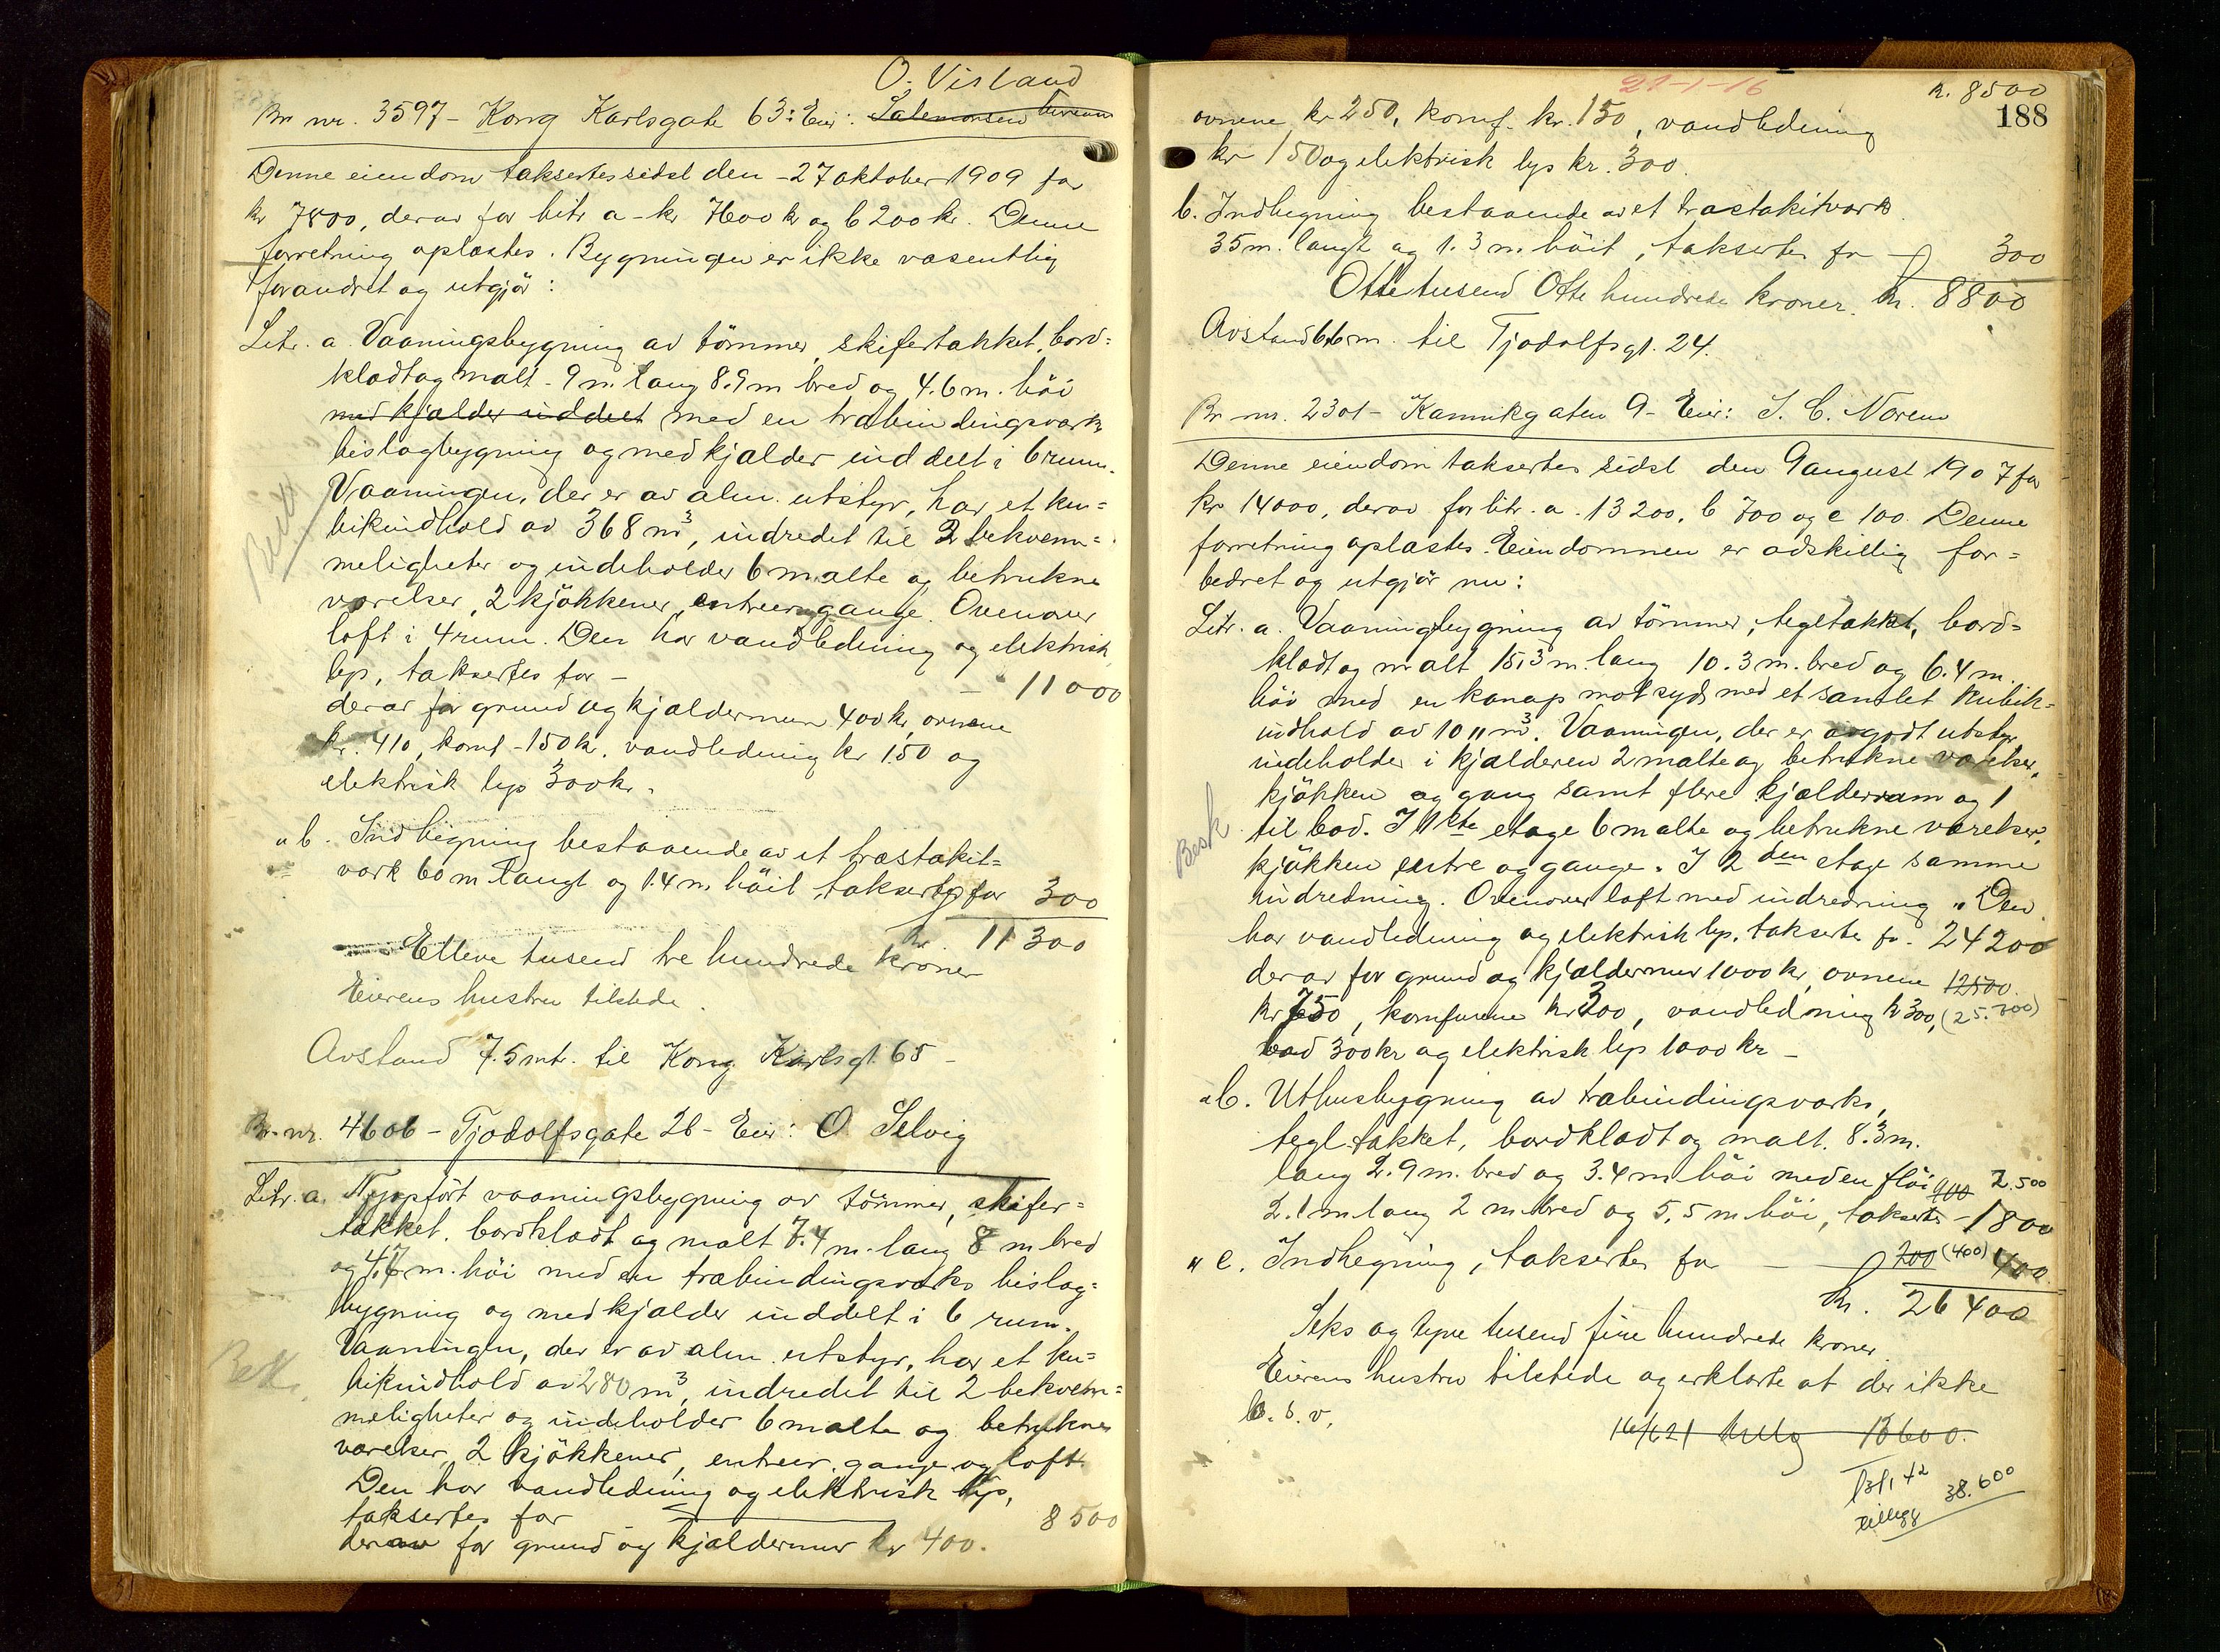 O. Visland
Br nr. 3597 - Kong Karlsgate 63: Eier: Salemonsen
Denne eiendom taksertes sidst den - 27 oktober 1909 for
kr 7800, derav for litr a - kr 7600 kr og b 200 kr. Denne
forretning oplæstes. Bygningen er ikke væsentlig
forandret og utgjør:
Litr. a. Vaaningsbygning av tømmer, skifertækket, bord=
klædt og malt - 9 m. lang 8.9 m bred og 4.6 m. høi
med kjælder inddelt med en træbindingsværks
bislagbygning og med kjælder inddelt i 6 rum.
Vaaningen, der er av alm. utstyr, har et ku=
bikindhold av 368 m³, indredet til 2 bekvem=
meligheter og indeholder 6 malte og betrukne
værelser, 2 kjøkkener, entreer og gange. Ovenover
loft i 4 rum. Den har vandledning og elektrisk
lys, taksertes for - - " 11000
derav for grund og kjældermur 400 kr, ovnene
kr. 410, komf - 150 kr. vandledning kr 150 og
elektrisk lys 300 kr.
" b. Indhegning bestaaende av et træstakit=
værk 60 m langt og 1.4 m. høit, taksertes for 300
Kr. 11300
Elleve tusend tre hundrede kroner
Eierens hustru tilstede.
Avstand 7.5 mtr. til Kong Karlsgt. 65 -
Br. nr. 4606 - Tjodolfsgate 26 - Eier: O Selvig
Litr. a. Nyopført vaaningsbygning av tømmer, skifer=
tækket. bordklædt og malt 7.4 m. lang 8 m bred
og 4.7 m. høi med en træbindingsværks bislag=
bygning og med kjælder inddelt i 6 rum.
Vaaningen, der er av alm. utstyr, har et ku=
bikindhold av 280 m³, indredet til 2 bekvem=
meligheter og indeholder 6 malte og betrukne
værelser, 2 kjøkkener, entreer, gange og loft.
Den har vandledning og elektrisk lys,
taksertes for 8500
derav for grund og kjældermur kr 400.
21-1-16
kr. 8500
188
ovnene kr 250, komf. kr. 150, vandledning
kr 150 og elektrisk lys kr. 300.
b. Indhegning bestaaende av et træstakitværk
35 m. langt og 1.3 m. høit, taksertes for 300
Otte tusend Otte hundrede kroner. Kr. 8800
Avstand 6.6 m. til Tjodolfsgt. 24.
Br nr. 2301 - Kannikgaten 9 - Eier: S. C. Norem
Denne eiendom taksertes sidst den 9 august 1907 for
kr 14000, derav for litr. a. 13200, b 700 og c 100. Denne
forretning oplæstes. Eiendommen er adskillig for=
bedret og utgjør nu:
Litr. a. Vaaningsbygning av tømmer, tegltækket, bord=
klædt og malt 15,3 m. lang 10.3 m. bred og 6.4 m.
høi med en kanap mot syd, med et samlet kubik=
indhold av 1011 m³. Vaaningen, der er av godt utstyr
indeholder i kjælderen 2 malte og betrukne værelser,
kjøkken og gang samt flere kjælderrum og 1
til bad. I 1ste etage 6 malte og betrukne værelser,
Besk
kjøkken entre og gange. I 2den etage samme
indredning. Ovenover loft med indredning. Den
har vandledning og elektrisk lys, taksertes for 24200
derav for grund og kjældermur 1000 kr, ovnene 12500
kr 750, komfurene kr 300, vandledning kr 300, (25.300)
bad 300 kr og elektrisk lys 1000 kr -
" b. Uthusbygning av træbindingsværks,
tegltækket, bordklædt og malt. 8.3 m.
lang 2.9 m. bred og 3.4 m høi med en fløi 900 2.500
2.1 m lang 2 m bred og 5,5 m høi, taksertes - 1800
" c. Indhegning, taksertes for 200 (400) 400
Kr. 26400
Seks og tyve tusend fire hundrede kroner
Eierens hustru tilstede og erklærte at der ikke
b. b. v.
13600.
38.600
tillegg